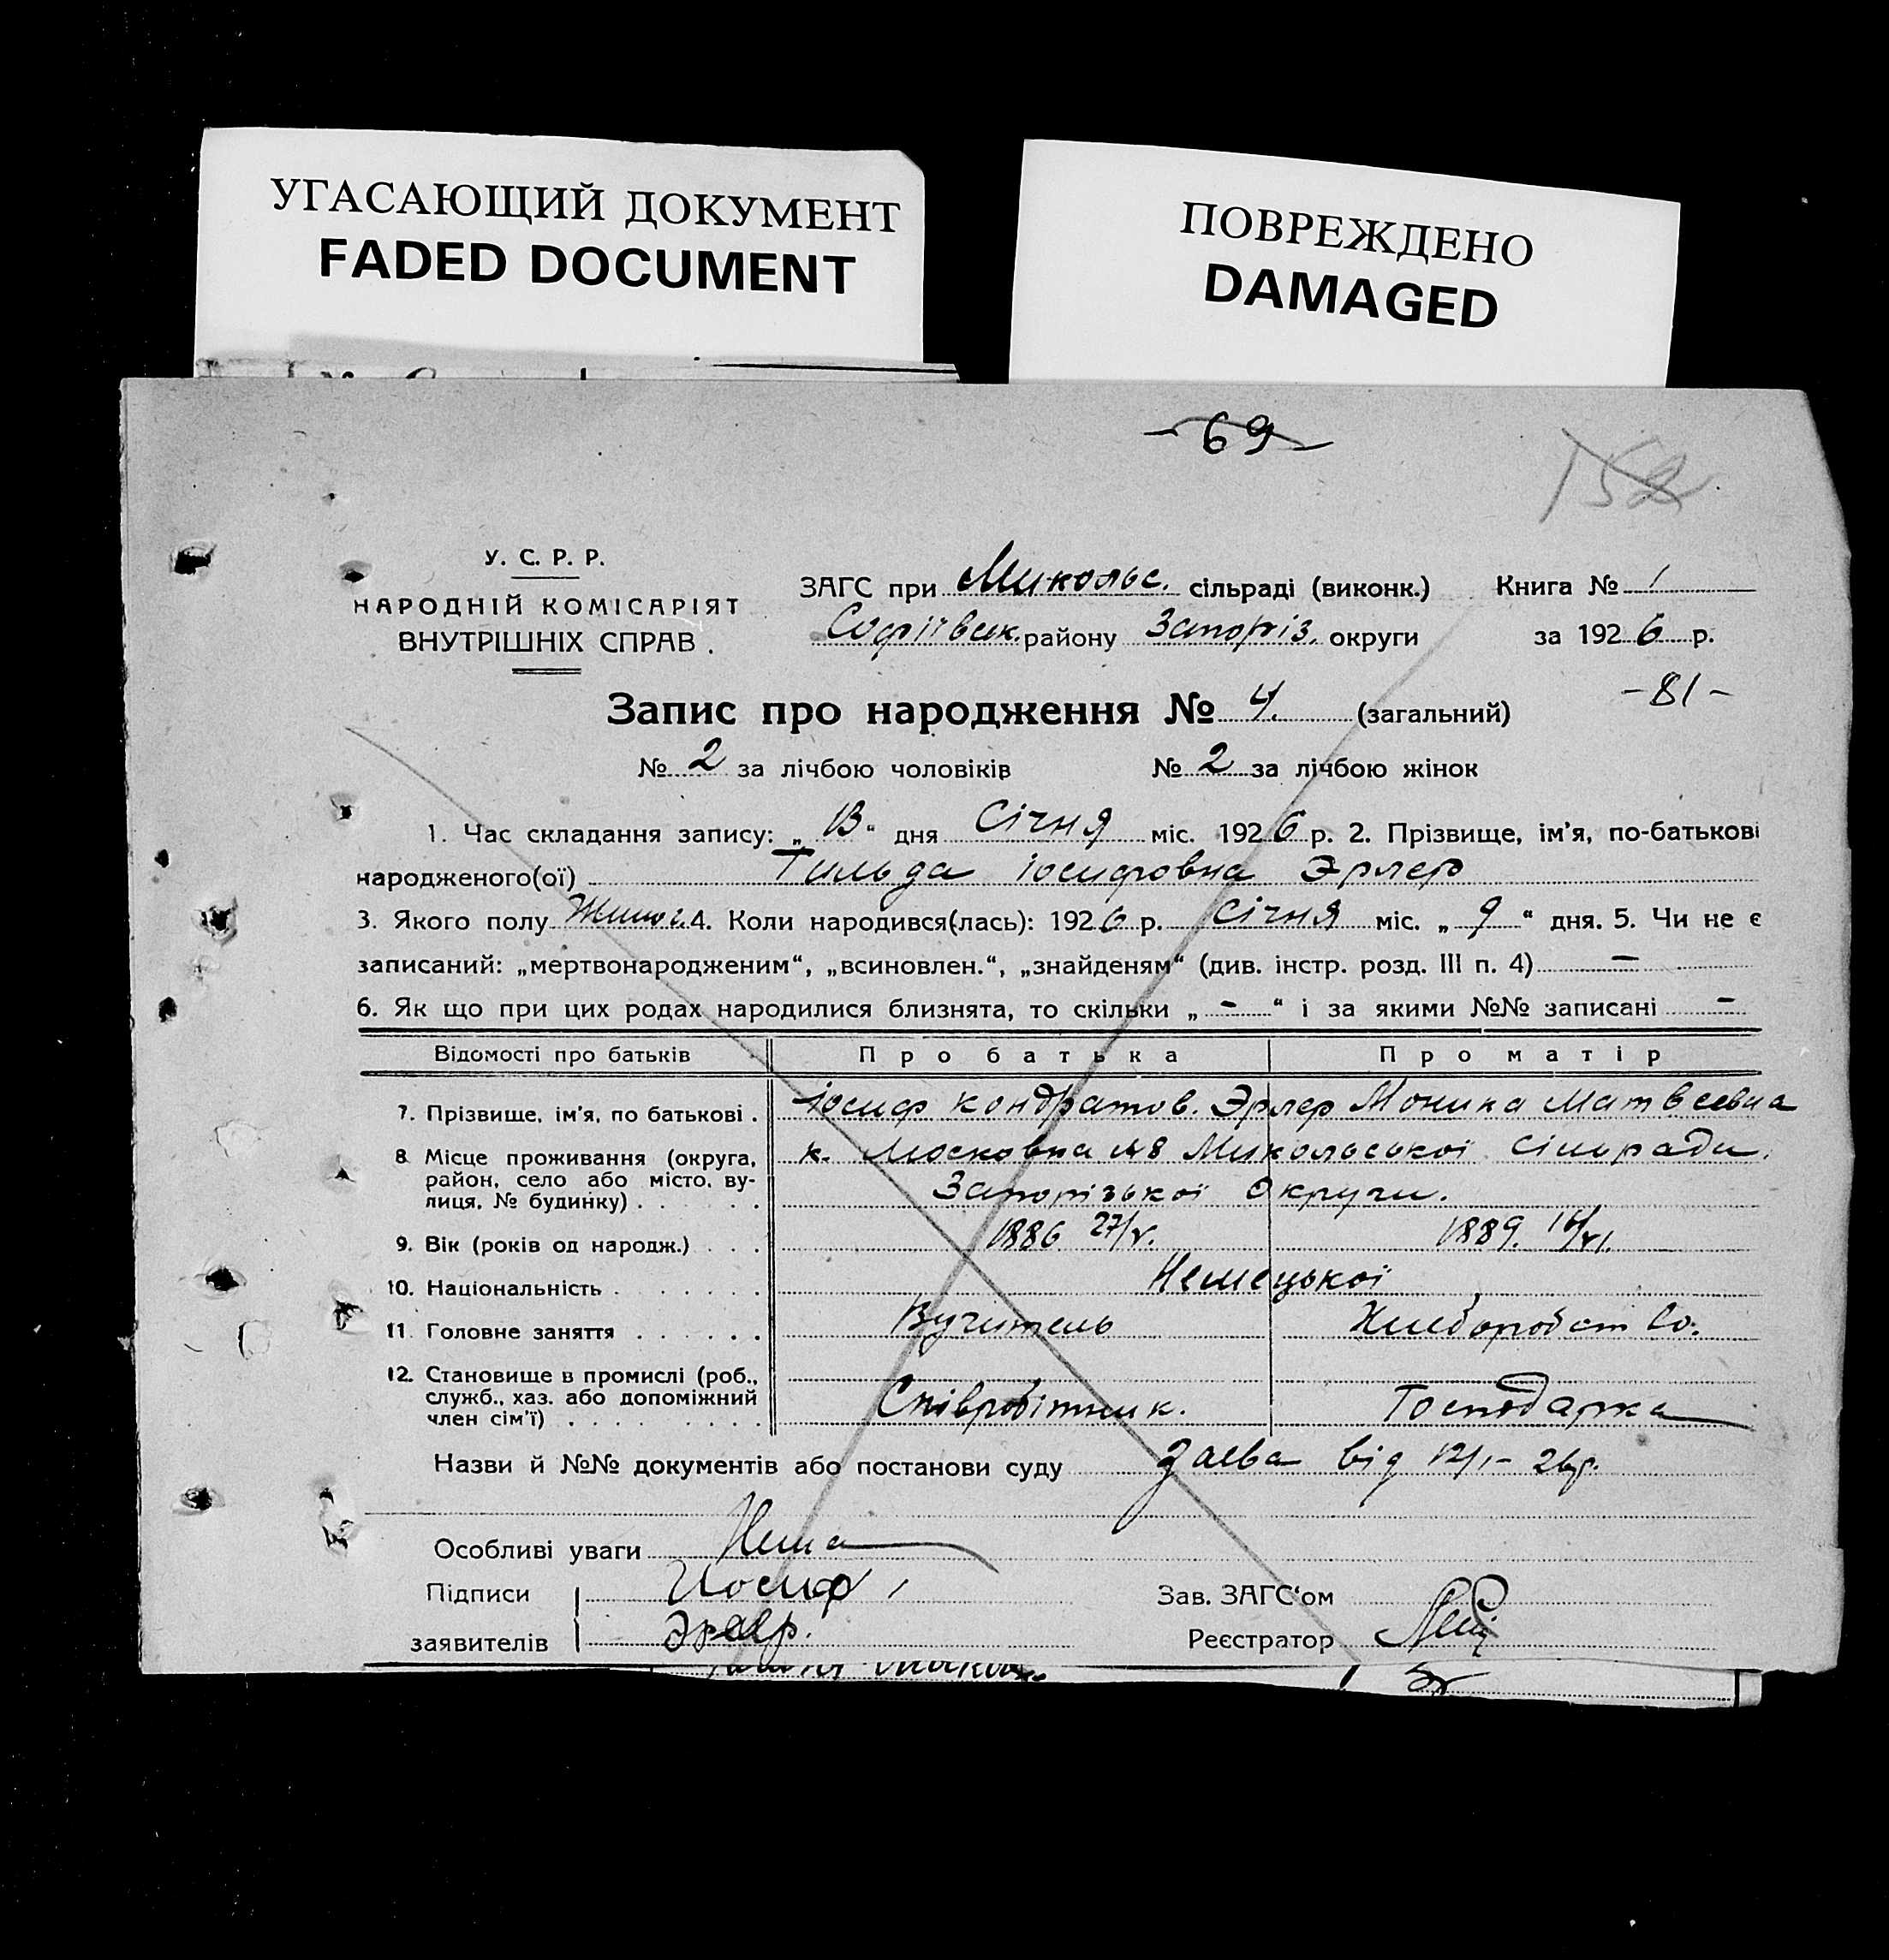 УГАСАЮЩИЙ ДОКУМЕНТ
FADED DOCUMENT
ПОВРЕЖДЕНО
DAMAGED
69
152
У. С. Р. Р.
НАРОДНІЙ КОМІСАРІЯТ
ВНУТРІШНІХ СПРАВ.
ЗАГС при Микольс. сільраді (виконк.) Книга № 1
Софіївськ. району Запоріз. округи за 1926 р.
-81-
Запис про народження № 4. (загальний)
№ 2 за лічбою чоловіків № 2 за лічбою жінок
1. Час складання запису: „13“ дня Січня міс. 1926 р. 2. Прізвище, ім'я, по-батькові
народженого(ої) Тильда іосифовна Эрлер
3. Якого полу Жиноч. 4. Коли народився(лась): 1926 р. Січня міс. „9“ дня. 5. Чи не є
записаний: „мертвонародженим“, „всиновлен.“, „знайденям“ (див. інстр. розд. III п. 4) —
6. Як що при цих родах народилися близнята, то скільки „-“ і за якими №№ записані -
Відомості про батьків Про батька Про матір
7. Прізвище, ім'я, по батькові . іосиф кондратов. Эрлер Моника Матвеевна
8 Місце проживання (округа, район, село або місто, вулиця, № будинку) . к. Московка №8 Микольської сільради.
Запорізької Округи.
9. Вік (років од народж.) . . . 1886 27/V. 1889. 16/VI.
10. Національність . Немецької
11. Головне заняття . Вучитель Хлебороб ст Со.
12. Становище в промислі (роб., служб., хаз. або допоміжний член сім'ї) . Співробітник. Господарка
Назви й №№ документів або постанови суду Заева від 12/1- 26р.
Особливі уваги Нема
Підписи Иосиф
заявителів Эрлер.
Зав. ЗАГС'ом
Реєстратор